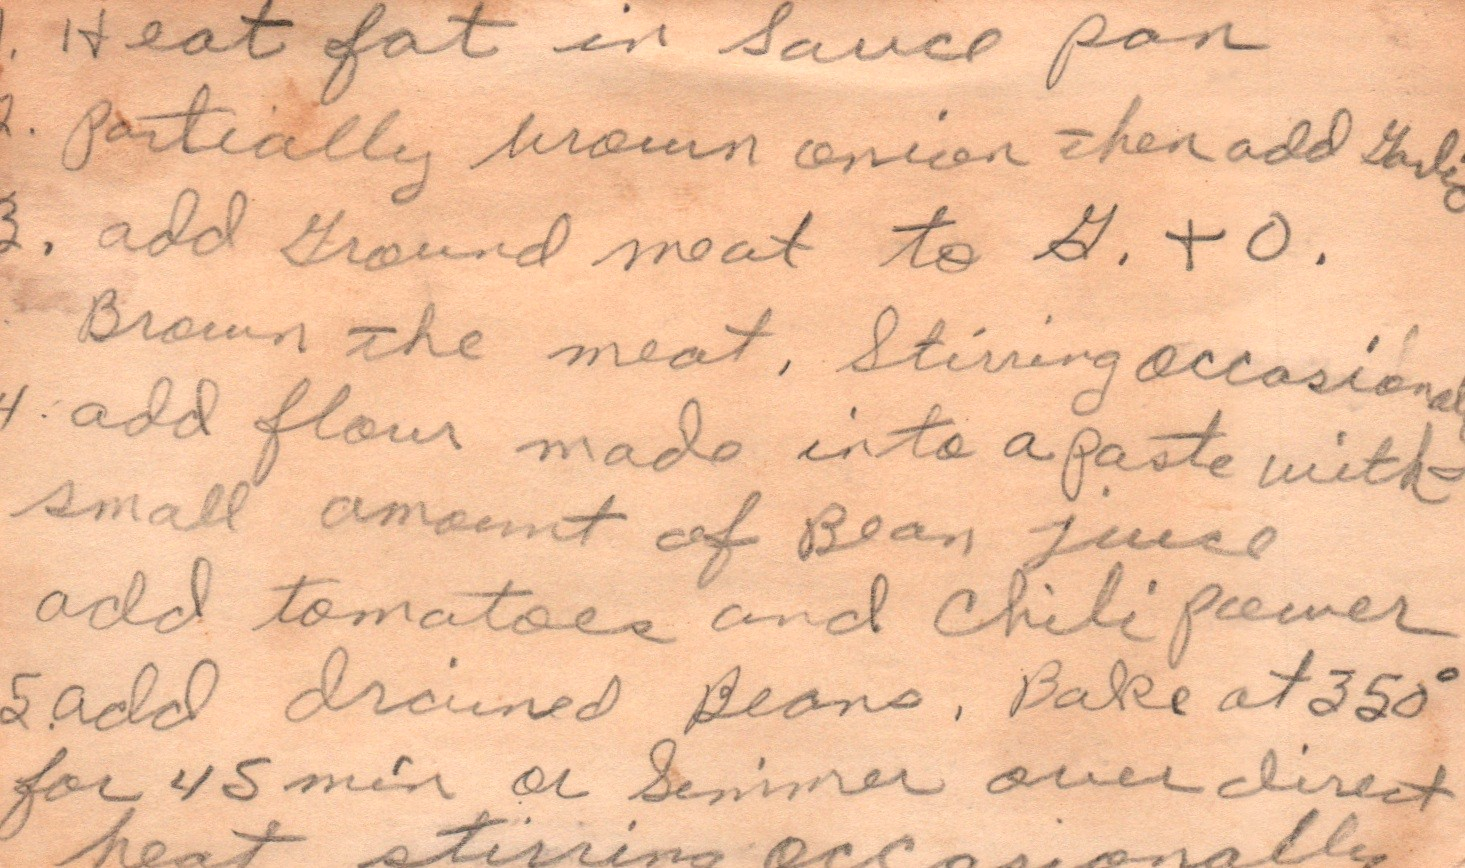 1. Heat fat in Sauce pan
2. Partially brown onion then add Garlic
3. add Ground meat to G. + O.
Brown the meat, Stirring occasionally
4. add flour made into a paste with
small amount of Bean juice
add tomatoes and Chili power
5. add drained Beans. Bake at 350°
for 45 min or Simmer over direct
heat stirring occasionally